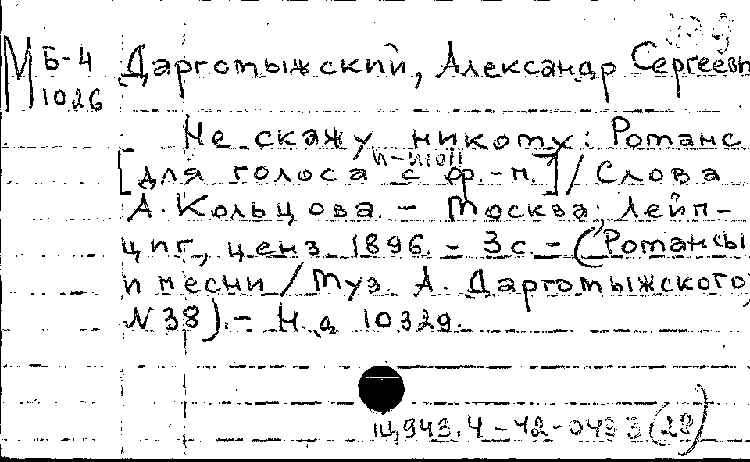 М Б-4 Даргомыжский, Александр Сергеевич
1026
Не скажу никому: Романс
[для голоса с ф.-п.] / Слова
А. Кольцова. - Москва; Лейп-
циг, ценз. 1896. - 3 с. - (Романсы
и песни / Муз. А. Даргомыжского,
N 38). - Н.д. 10329.
Щ943.4-42-0493(28)